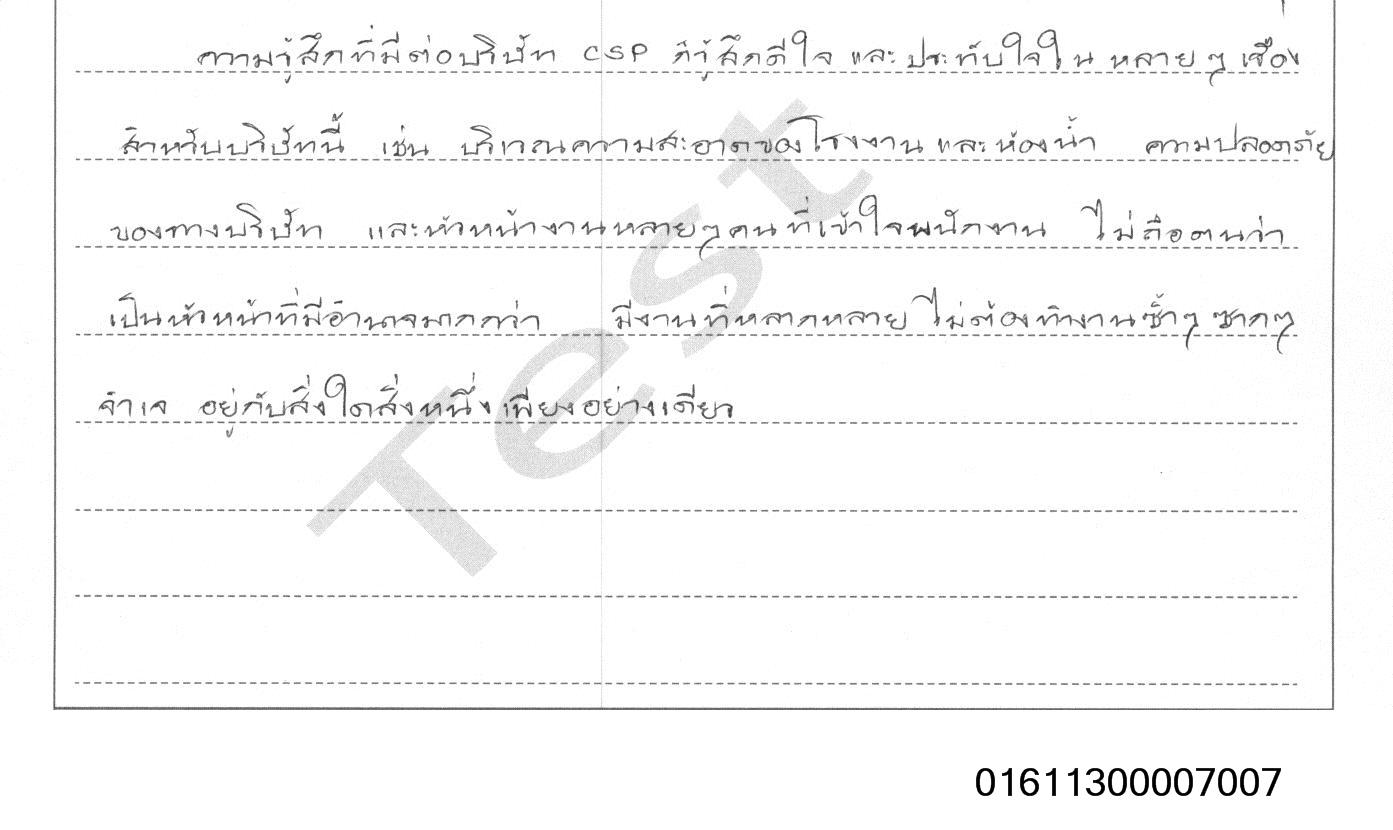 ความรู้สึกที่มีต่อบริษัท CSP ก็รู้สึกดีใจ และประทับใจใน หลายๆ เรื่อง
สำหรับบริษัทนี้ เช่น บริเวณความสะอาดของโรงงาน และห้องน้ำ ความปลอดภัย
ของทางบริษัท และหัวหน้างานหลายๆคนที่เข้าใจพนักงาน ไม่ถือตนว่า
เป็นหัวหน้าที่มีอำนาจมากกว่า มีงานที่หลากหลาย ไม่ต้องทำงานซ้ำๆ ซากๆ
จำเจ อยู่กับสิ่งใดสิ่งหนึ่งเพียงอย่างเดียว
Test
01611300007007